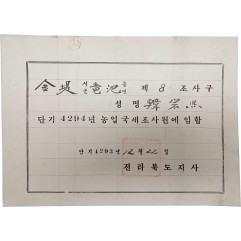 金堤 시군 竜池 읍면 제 8 조사구
성명
단기 4294년 농업국세조사원에 임함
단기 4293년 12월 20일
전라북도지사